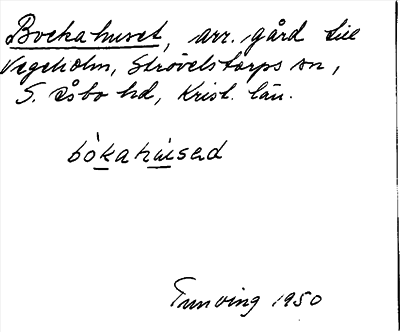 Bockahuset, arr. gård till
Vegeholm, Strövelstorps sn,
S. Åsbo hd, Krist. län.
bòkahùsəd
Tunving 1950